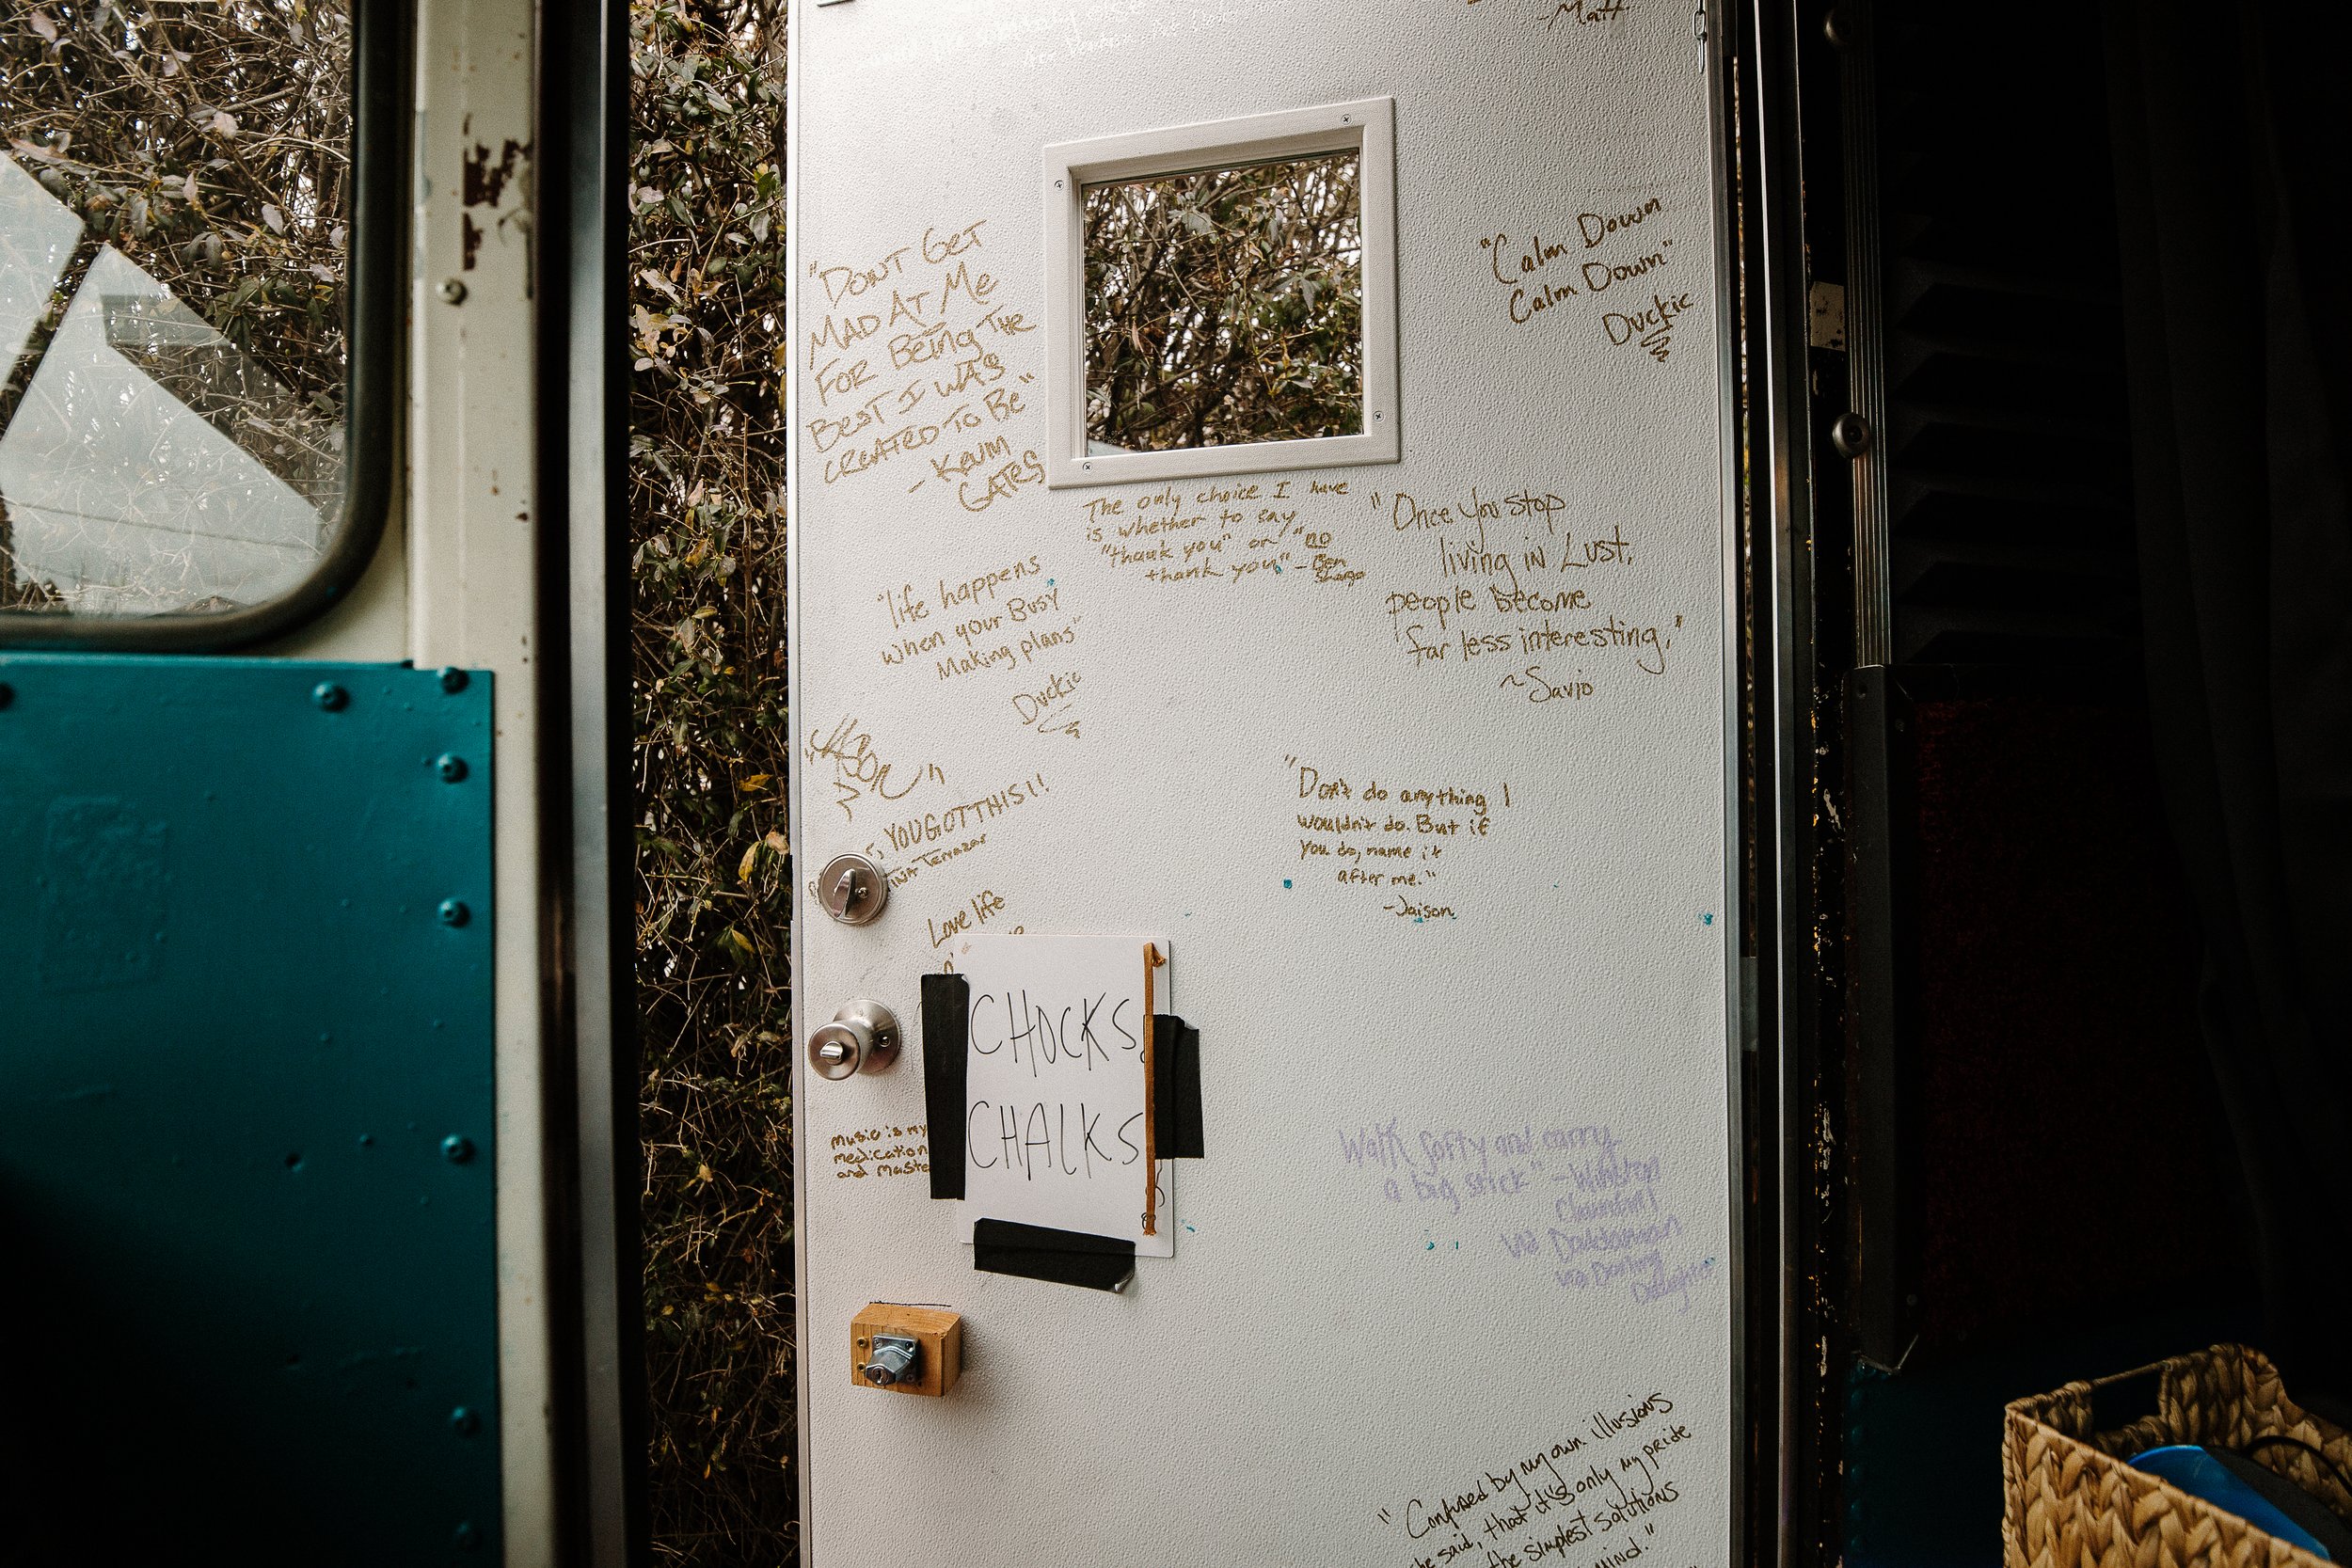 -Matt
"DONT GET
MAD AT ME
FOR BEING THE
BEST I WAS
CREATED TO BE"
- KEVIN
GATES
"Calm Down
Calm Down"
Duckie
The only choice I have
is whether to say
"thank you" or "no
thank you" -Ben
"Once you stop
living in Lust,
people become
far less interesting."
~Savio
"life happens
when your Busy
Making plans"
Duckie
YOU GOT THIS!!
Terrazas
"Don't do anything I
wouldn't do. But if
you do, name it
after me."
-Jaison
Love life
CHOCKS
CHALKS
music is my
medication
and maste
Walk softly and carry
a big stick" - Winston
Churchill
via
via Darling
Daughter
"Confused by my own illusions
he said, that it's only my pride
the simplest solutions
mind."